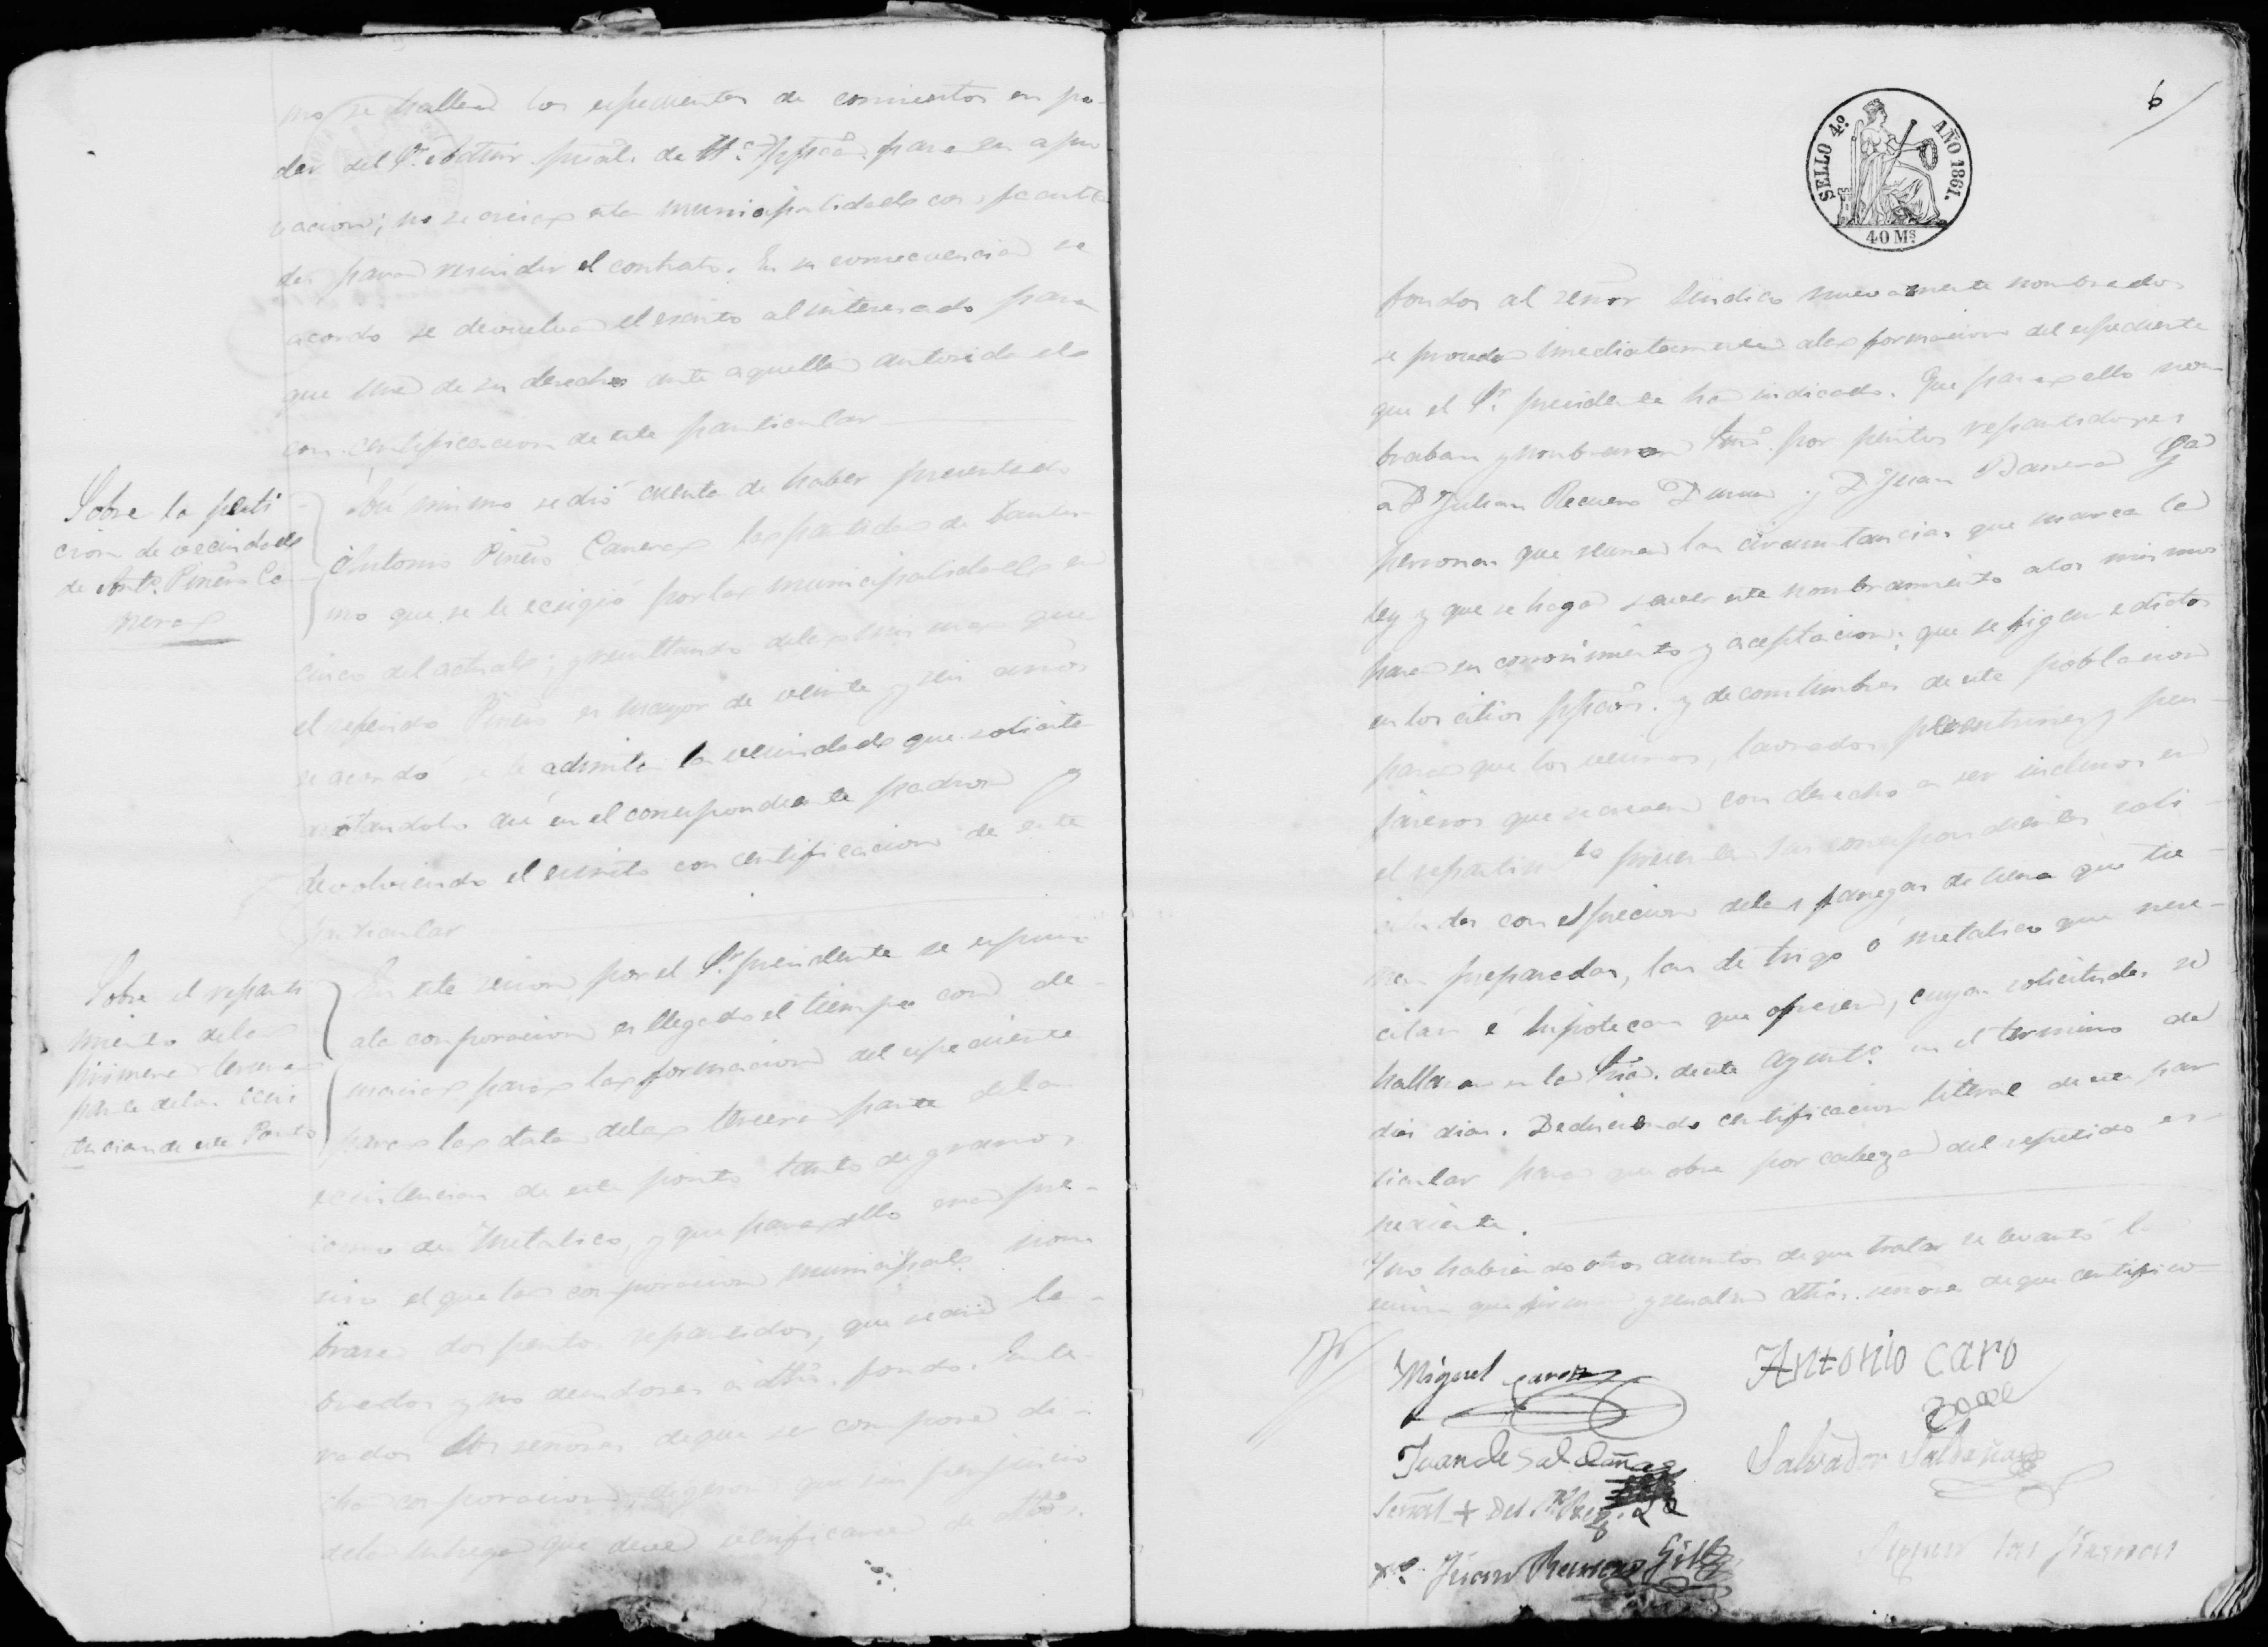 mo se hallan los espedientes de conciertos en po-
der del Sr. Admr. pral. de Hª. ppcâ. para su apro
vacion; no se cree esta municipalidad con faculta
des para rescindir el contrato. En su consecuencia se
acordo se devuelva el escrito al interesado para
que use de su derecho ante aquella autoridad
con certificacion de este particular
Sobre la peti-
cion de vecindad
de Antº. Piñero Ca-
nera
Asi mismo se dió cuenta de haber presentado
Antonio Piñero Canera la partida de bautis-
mo que se le ecsigió por la municipalidad en
cinco del actual; y resultando de la misma que
el referido Piñero es mayor de veinte y seis años
se acordó se le admita la vecindad que solicita
anotandolo asi en el correspondiente padron y
devolviendo el escrito con certificacion de este
particular
Sobre el reparti
miento de la
primera tercera
parte de las ecsis
tencias de este Posito
En esta sesion por el Sr. presidente se espuso
a la corporacion es llegado el tiempo con de-
macia para la formacion del espediente
para la data de la tercera parte de la
ecsistencias de este posito tanto de granos
como de metalico, y que para ello era pre-
ciso el que la corporacion municipal nom
brase dos peritos repartidores, que sean la-
bradores y no deudores á dhô. fondo. Ente-
rados los señores de que se compone di-
cha corporacion digeron que sin perjuicio
de la entrega que deve verificarse de dhôs.
6
SELLO 4º. AÑO 1861.
40 Ms.
fondos al señor Sindico nuevamente nombrado
se proceda imediatamente a la formacion del espediente
que el Sr. presidente ha indicado. Que para ello nom
braban y nombraron por peritos repartidores
a D. Julian Recuero Duran y D. Juan Barrera
personas que reunen las circunstancias que marca la
ley y que se haga saver este nombramiento a los mismos
para su conocimiento y aceptacion; que se figen edictos
en los citios ppcôs. y de costumbre de esta poblacion
para que los vecinos, lavradores, pelentrines y pen-
jareros que se crean con derecho a ser inclusos en
el repartimto. presenten sus correspondientes soli-
citudes con espresion de las fanegas de tierra que tie-
nen preparadas, las de trigo o metalico que nece-
citan é hipotecas que ofrecen, cuyas solicitudes se
hallaran en la Sria. de este Ayuntº. en el termino de
diez dias. Deduciendo certificacion literal de este par
ticular para que obre por cabeza del repetido es-
pediente.
Y no habiendo otros asuntos de que tratar se levantó la
sesion que firman y señalan dhôs. señores de que certifico
Miguel
Antonio Caro
Juan de Saldaña
Salvador Saldaña
Señal + del Sr. Reg.
Juan Romero Gil
Siguen las firmas